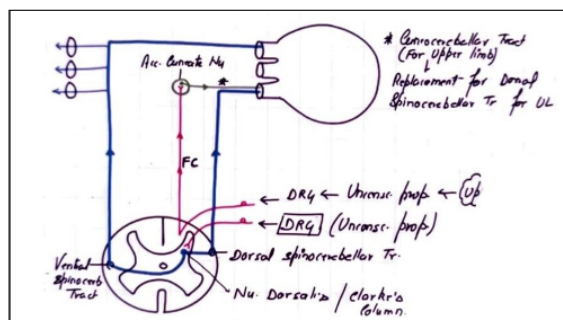 Acc. Cuneate Nu
*
* Cuneocerebellar Tract
(For Upper limb)
↓
Replacement for Dorsal
Spinocerebellar Tr for UL
FC
← DRG ← Unconsc. prop ← Up
← DRG (Unconsc. prop)
Dorsal spinocerebellar Tr.
Ventral
Spinocerb
Tract
Nu. Dorsalis / Clarke's
Column.